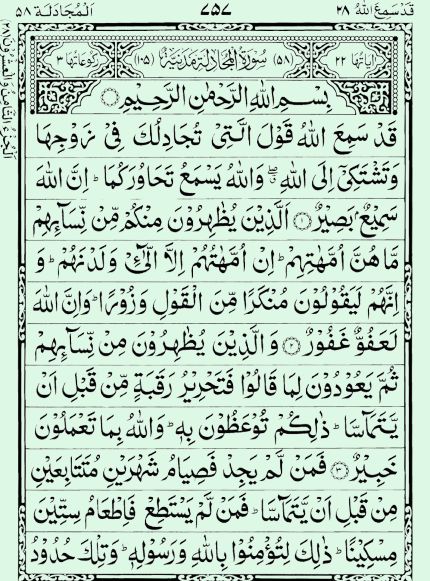 قَدْ سَمِعَ اللهُ ٢٨
٧٥٧
اَلْمُجَادَلَة ٥٨
اٰیَاتُهَا ٢٢
(٥٨) سُوْرَةُ الْمُجَادَلَةِ مَدَنِیَّةٌ (١٠٥)
رُكُوْعَاتُهَا ٣
بِسْمِ اللهِ الرَّحْمٰنِ الرَّحِیْمِ
قَدْ سَمِعَ اللهُ قَوْلَ الَّتِیْ تُجَادِلُكَ فِیْ زَوْجِهَا
وَتَشْتَكِیْۤ اِلَی اللهِ ۖ وَاللهُ یَسْمَعُ تَحَاوُرَكُمَا ؕ اِنَّ اللهَ
سَمِیْعٌۢ بَصِیْرٌ ١ اَلَّذِیْنَ یُظٰهِرُوْنَ مِنْكُمْ مِّنْ نِّسَآىِٕهِمْ
مَّا هُنَّ اُمَّهٰتِهِمْ ؕ اِنْ اُمَّهٰتُهُمْ اِلَّا الّٰٓـِٔیْ وَلَدْنَهُمْ ؕ وَ
اِنَّهُمْ لَیَقُوْلُوْنَ مُنْكَرًا مِّنَ الْقَوْلِ وَزُوْرًا ؕ وَاِنَّ اللهَ
لَعَفُوٌّ غَفُوْرٌ ٢ وَالَّذِیْنَ یُظٰهِرُوْنَ مِنْ نِّسَآىِٕهِمْ
ثُمَّ یَعُوْدُوْنَ لِمَا قَالُوْا فَتَحْرِیْرُ رَقَبَةٍ مِّنْ قَبْلِ اَنْ
یَّتَمَآسَّا ؕ ذٰلِكُمْ تُوْعَظُوْنَ بِهٖ ؕ وَاللهُ بِمَا تَعْمَلُوْنَ
خَبِیْرٌ ٣ فَمَنْ لَّمْ یَجِدْ فَصِیَامُ شَهْرَیْنِ مُتَتَابِعَیْنِ
مِنْ قَبْلِ اَنْ یَّتَمَآسَّا ؕ فَمَنْ لَّمْ یَسْتَطِعْ فَاِطْعَامُ سِتِّیْنَ
مِسْكِیْنًا ؕ ذٰلِكَ لِتُؤْمِنُوْا بِاللهِ وَرَسُوْلِهٖ ؕ وَتِلْكَ حُدُوْدُ
اَلْجُزْءُ الثَّامِنُ وَالْعِشْرُوْنَ (٢٨)